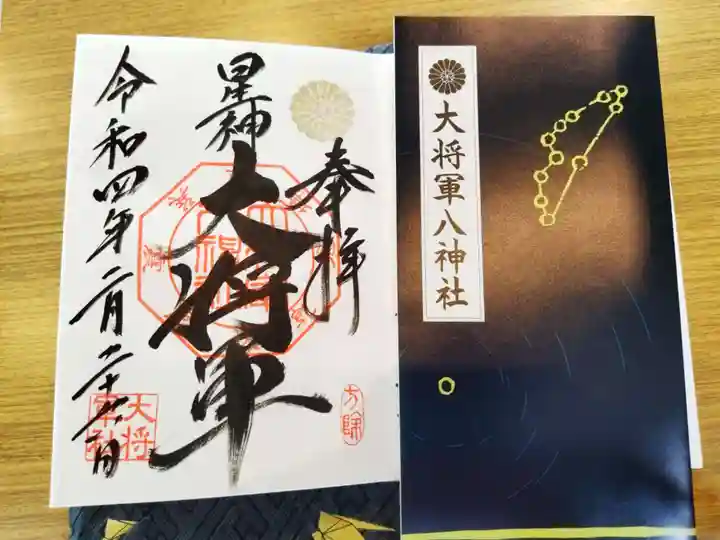 奉拝
星神
大将軍
令和四年二月二十六日
方除
大将
軍社
大将軍八神社